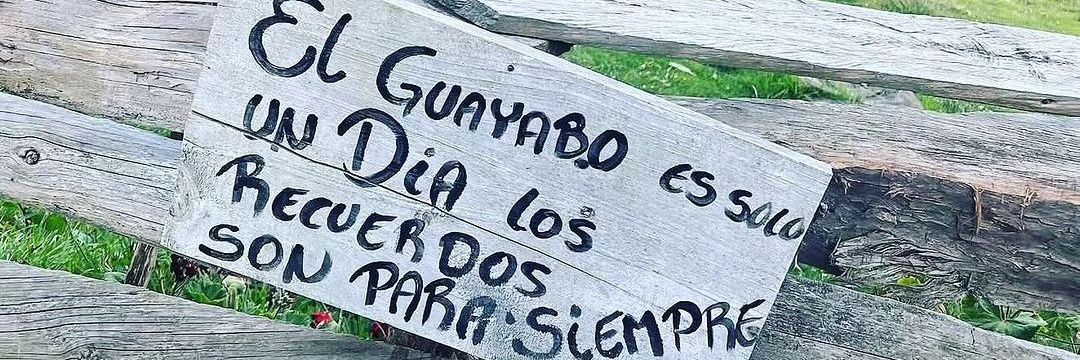 El GUAYABO ES SOLO
UN DiA LOS
RECUERDOS
SON PARA SiEMPRE